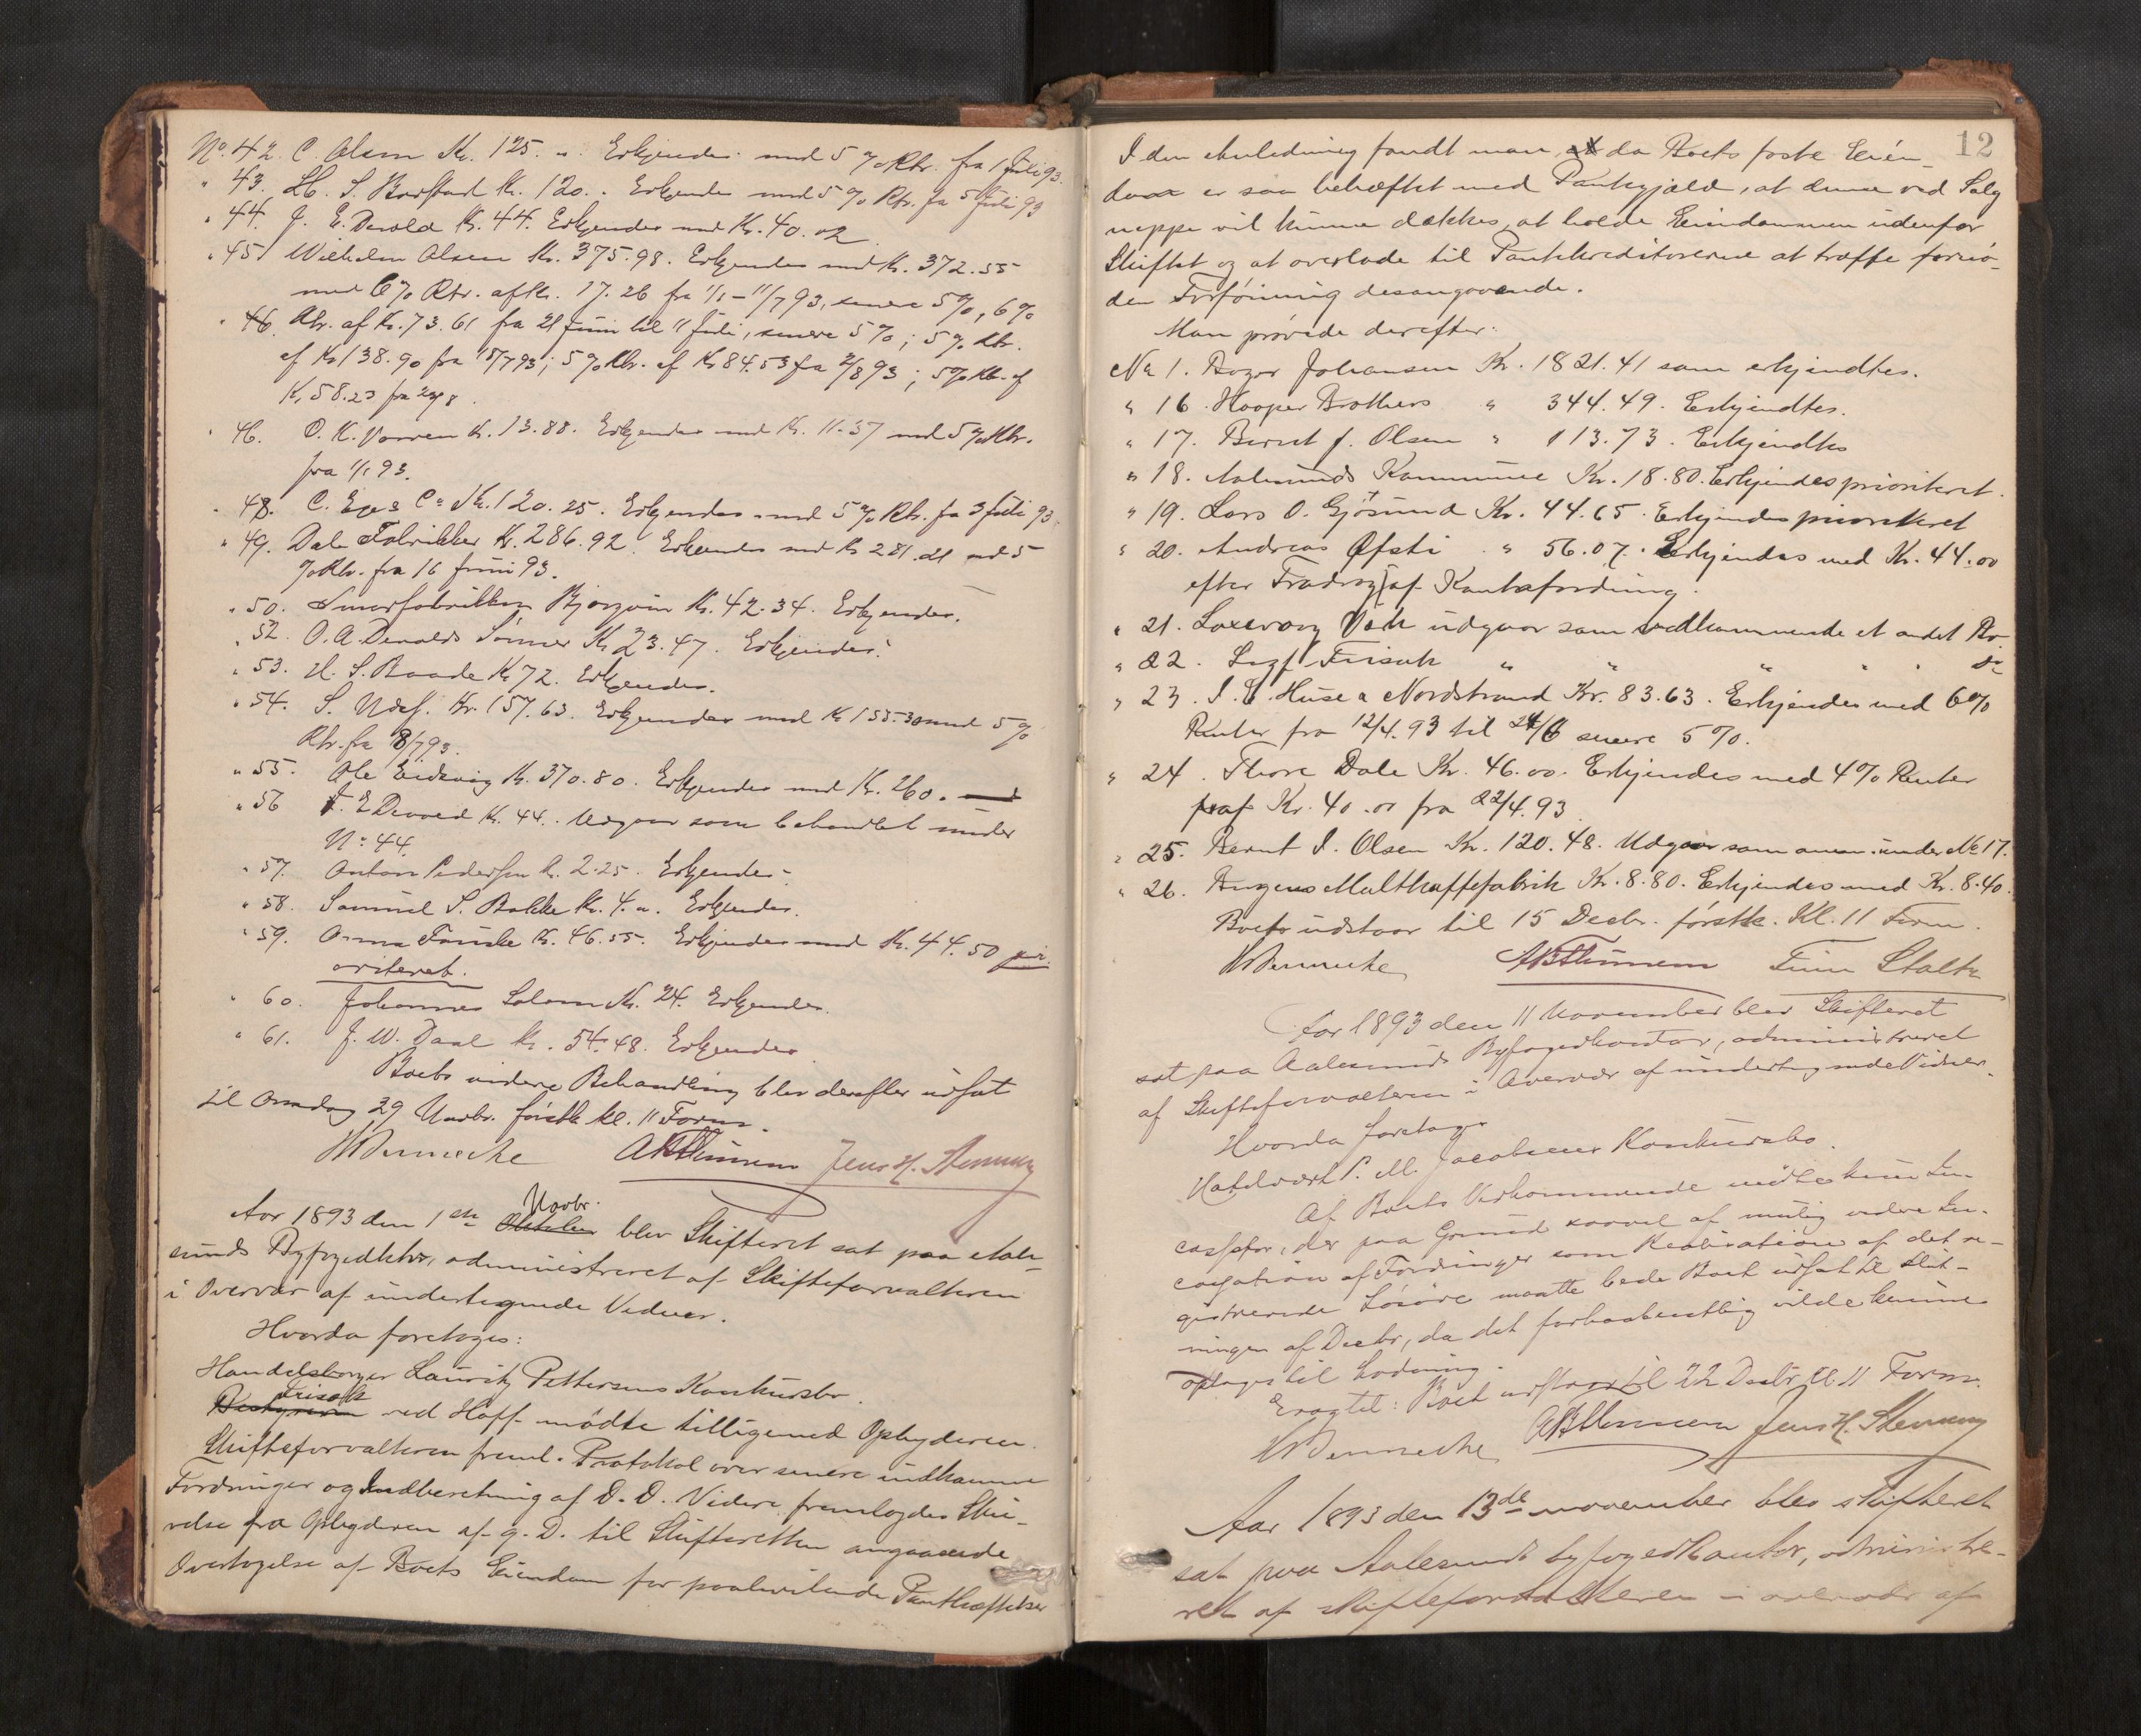 No. 42. C. Olsen Kr. 125. „ Erkjendes med 5 % Rtr. fra 1 Juli 93.
" 43. S. Kr. 120. „ Erkjendes med 5 % Rtr. fra 5 Juli 93
" 44. J. E. Devold Kr. 44. Erkjendes med Kr. 40.02
" 45. Wilhelm Olsen Kr. 375.98. Erkjendes med Kr. 372.55
med 6 % Rtr. af Kr. 17.26 fra 1/1 - 11/7 93, senere 5 %, 6 %
Rtr. af Kr. 73.61 fra 21 Juni til 11 Juli, senere 5 %; 5 % Rtr.
af Kr 138.90 fra 15/7 93; 5 % Rtr. af Kr 84.53 fra 2/8 93; 5 % Rtr. af
Kr. 58.23 fra
" 46. O. K. Kr. 13.88. Erkjendes med Kr. 11.37 med 5 % Rtr.
fra 1/1 93.
" 48. C. Ege & Co Kr. 120.25. Erkjendes med 5 % Rtr. fra 3 Juli 93.
" 49. Dale Fabrikker Kr. 286.92. Erkjendes med Kr 281.21 med 5
% Rtr. fra 16 Juni 93.
" 50. Smørfabrikken Bjørgvin Kr. 42.34. Erkjendes.
" 52. O. A. Devolds Sønner Kr 23.47. Erkjendes.
" 53. H. S. Baade Kr 72. Erkjendes.
" 54. S. Kr. 157.63. Erkjendes med Kr 155.30 med 5 %
Rtr. fra 8/7 93.
" 55. Ole Eidsvig Kr. 370.80. Erkjendes med Kr. 260.
" 56 J. E Devold Kr. 44. Udgaar som behandlet under
No. 44.
" 57. Anton Pedersen Kr. 2.25. Erkjendes.
" 58. Samuel S. Bakke Kr. 4. „ Erkjendes.
" 59. Anna Kr. 46.55. Erkjendes med Kr. 44.50 pri-
oriteret.
" 60. Johannes Kr. 24. Erkjendes.
" 61. J. W. Daae Kr. 54.48. Erkjendes.
Boets videre Behandling blev derefter udsat
til Onsdag 29 Novbr. førstk. kl. 11 Form.
Jens H.
Aar 1893 den 1ste Oktober Novbr. blev Skifteret sat paa Aale-
sunds Byfogedktr, administreret af Skifteforvalteren
i Overvær af undertegnede Vidner.
Hvorda foretoges:
Handelsborger Lauritz Pettersens Konkursbo.
Bestyreren Frisak ved Hoff mødte tilligemed Opbyderen.
Skifteforvalteren freml. Protokol over senere indkomne
Fordringer og Indberetning af D. D. Videre fremlagdes Skri-
velse fra Opbyderen af g. D. til Skifteretten angaaende
Overtagelse af Boets Eiendom for paahvilende Panthæftelser
12
I den Anledning fandt man at da Boets faste Eien-
dom er saa behæftet med Pantegjæld, at denne ved Salg
neppe vil kunne dækkes, at holde Eiendommen udenfor
Skiftet og at overlade til Pantekreditorerne at træffe fornø-
den Forføining desangaaende.
Man prøvede derefter:
No 1. Johansen Kr. 1821.41 som erkjendtes.
" 16. Hooper Brothers " 344.49. Erkjendtes.
" 17. Bernt J. Olsen " 113.73. Erkjendtes
" 18. Aalesunds Kommune Kr. 18.80. Erkjendes prioriteret.
" 19. Lars O. Gjøsund Kr. 44.65. Erkjendes prioriteret
" 20. Andreas Øfsti " 56.07. Erkjendes med Kr. 44.00
efter Fradrag af Kontrafordring.
" 21. Laxevaag Værk udgaar som vedkommende et andet Bo
" 22. Frisak " " " " " do
" 23. I. C. Huse a Nordstrand Kr. 83.63. Erkjendes med 6 %
Renter fra 12/4.93 til 24/6 senere 5 %.
" 24. Thore Dale Kr. 46.00. Erkjendes med 4 % Renter
af Kr. 40.00 fra 22/4.93.
" 25. Bernt I. Olsen Kr. 120.48. Udgaar som anm. under No 17.
" 26. Maltkaffefabrik Kr. 8.80. Erkjendes med Kr. 8.40.
Boet udstaar til 15 Decbr. førstk. Kl. 11 Form.
Aar 1893 den 11 November blev Skifteret
sat paa Aalesunds Byfogedkontor, administreret
af Skifteforvalteren i Overvær af undertegnede Vidner.
Hvorda foretoges
P. M. Jacobsens Konkursbo.
Af Boets Vedkommende mødte kun In-
cassator, der paa Grund saavel af mulig videre In-
cassation af Fordringer som Realisation af det re-
gistrerede Løsøre maatte bede Boet udsat til Slut-
ningen af Decbr, da det forhaabentlig vilde kunne
optages til Lodning.
Eragtet: Boet udstaar til 22 Decbr kl. 11 Form.
Jens H.
Aar 1893 den 13de november blev skifteret
sat paa Aalesunds byfogedkontor, administre-
ret af skifteforvalteren i overvær af